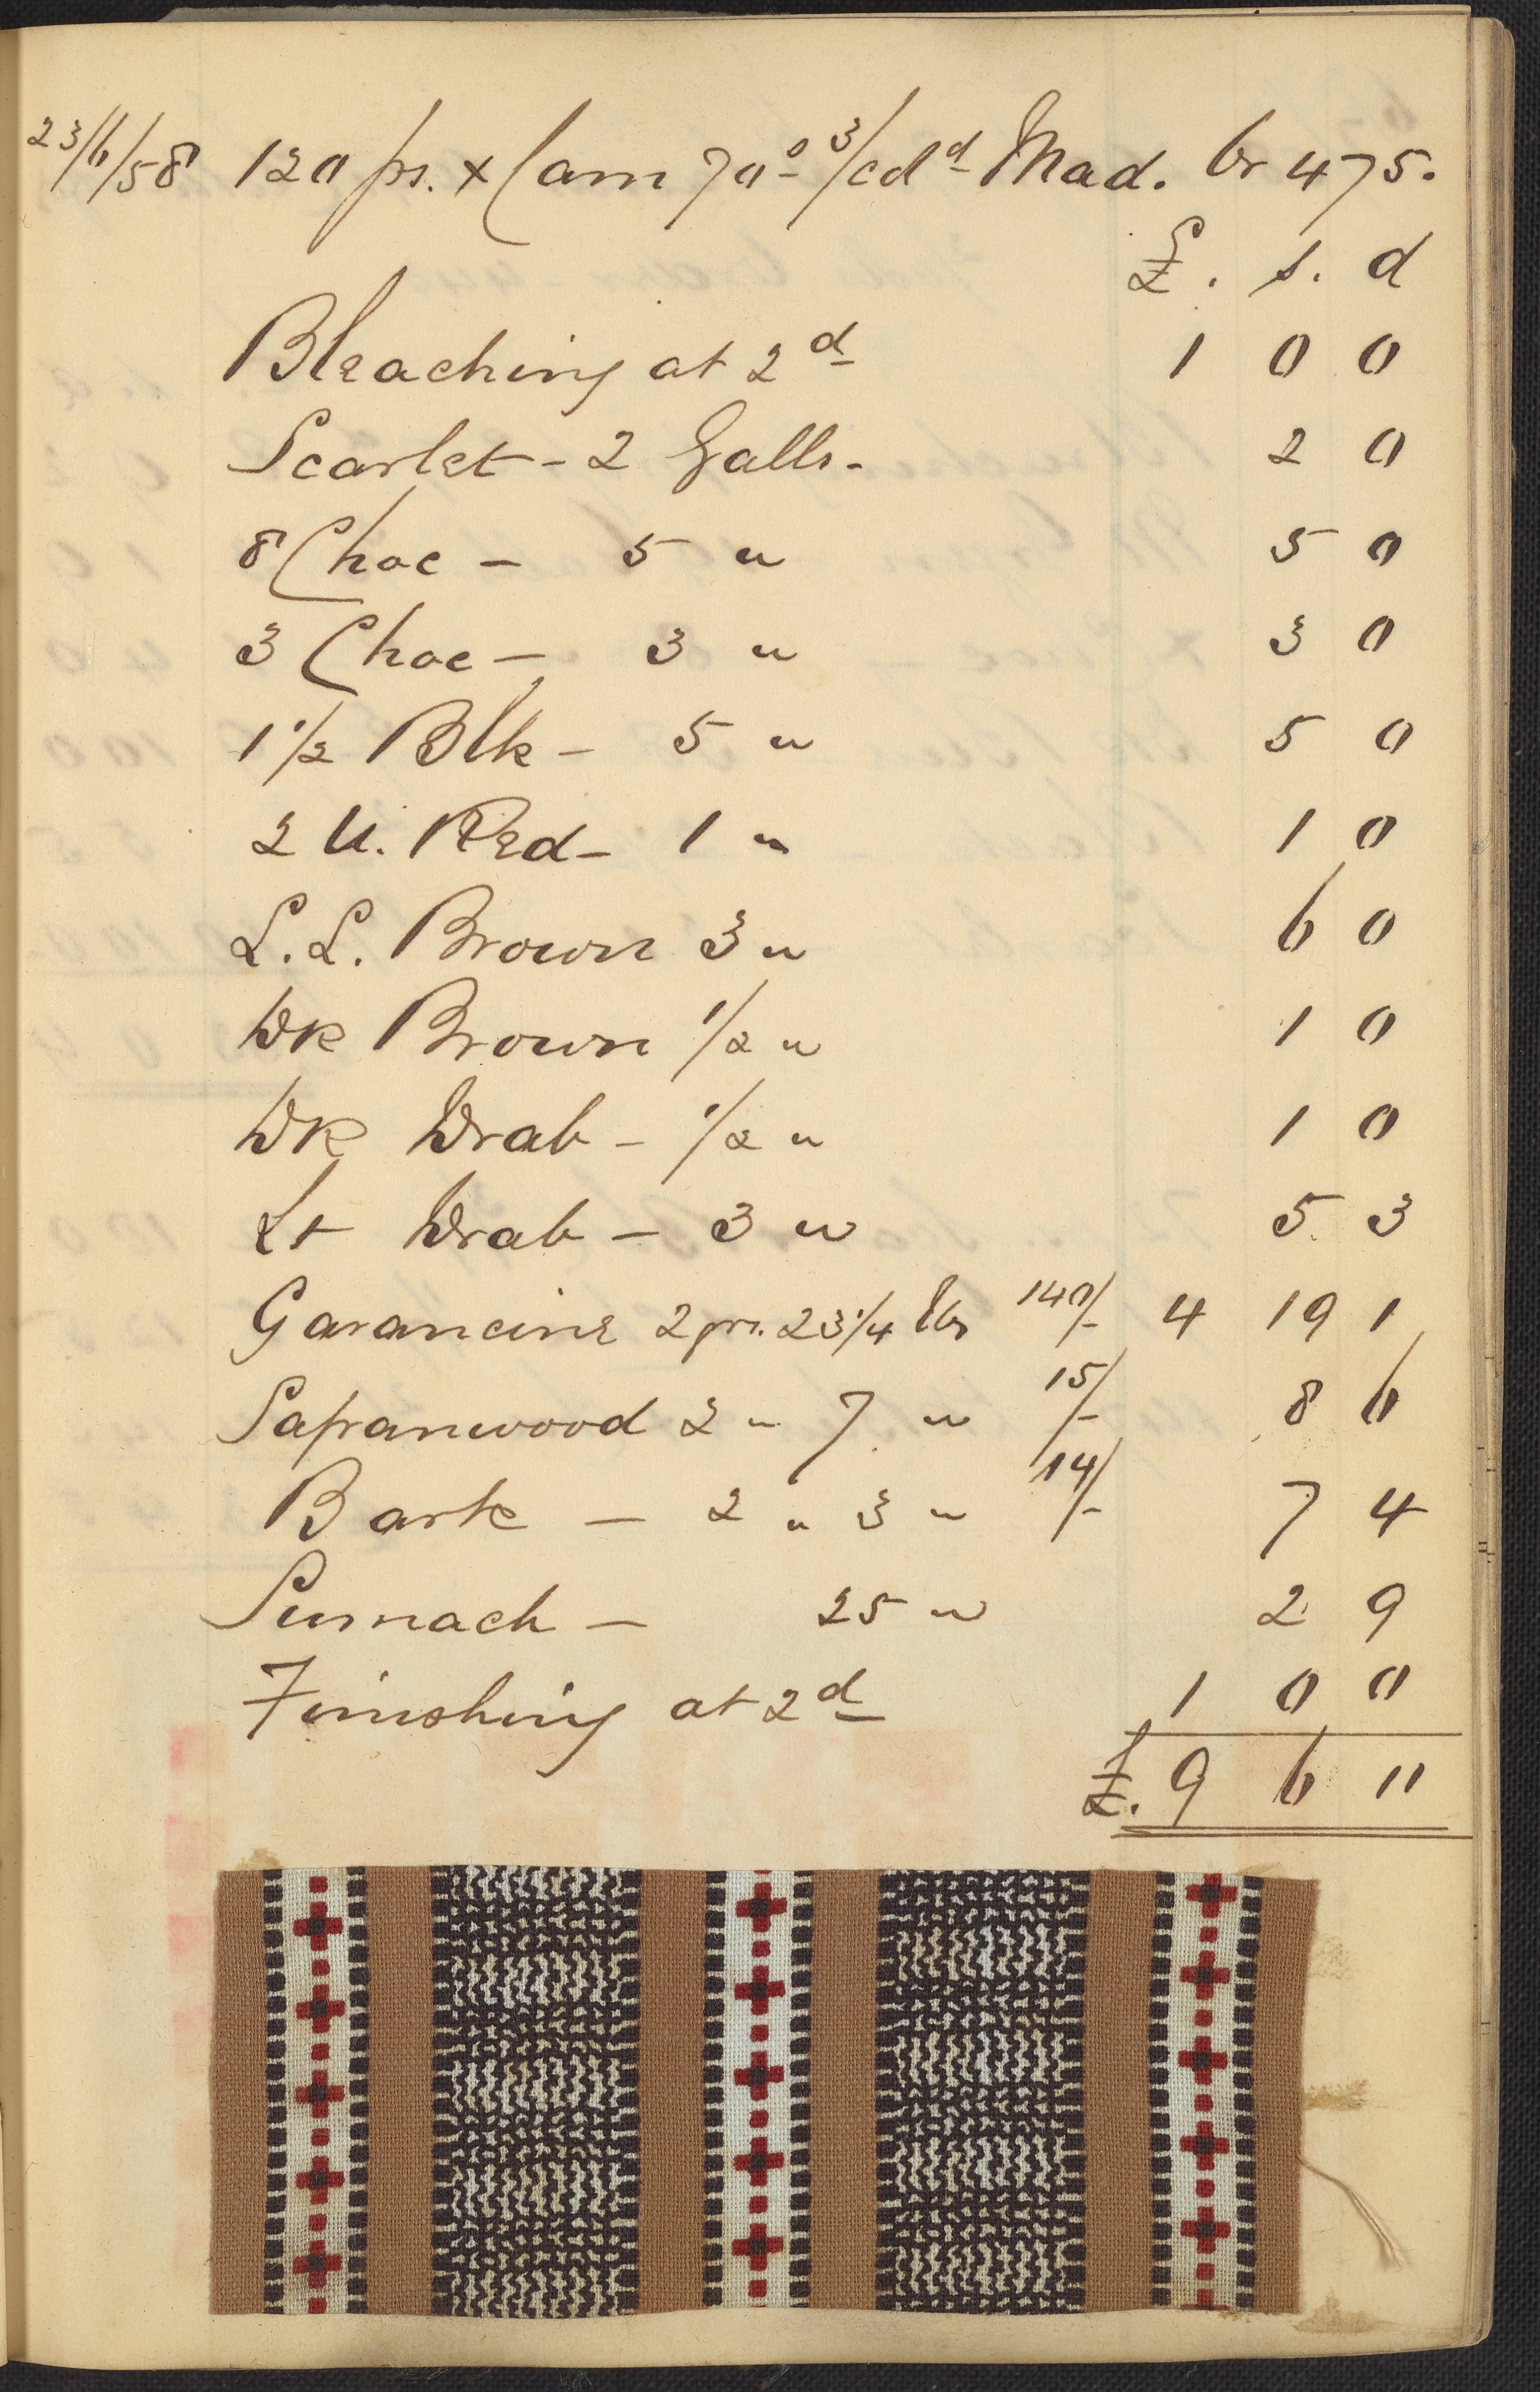 23/6/58 120 ps. x Cam 70s 3/cd d Mad. br 475.
£. s. d
Bleaching at 2d 1 0 0
Scarlet - 2 Galls. 2 0
8 Choc - 5 " 5 0
3 Choc - 3 " 3 0
1 1/2 Blk - 5 " 5 0
2 U. Red - 1 " 1 0
L. L. Brown 3 " 6 0
Dk Brown 1/2 " 1 0
Dk Drab - 1/2 " 1 0
Lt Drab - 3 " 5 3
Garancine 2 qrs. 23 1/4 lbs 140/- 4 19 1
Sapanwood 2 " 7 " 15/- 8 6
Bark - 2 " 3 " 14/- 7 4
Sumach - 25 " 2 9
Finishing at 2d 1 0 0
£. 9 6 11